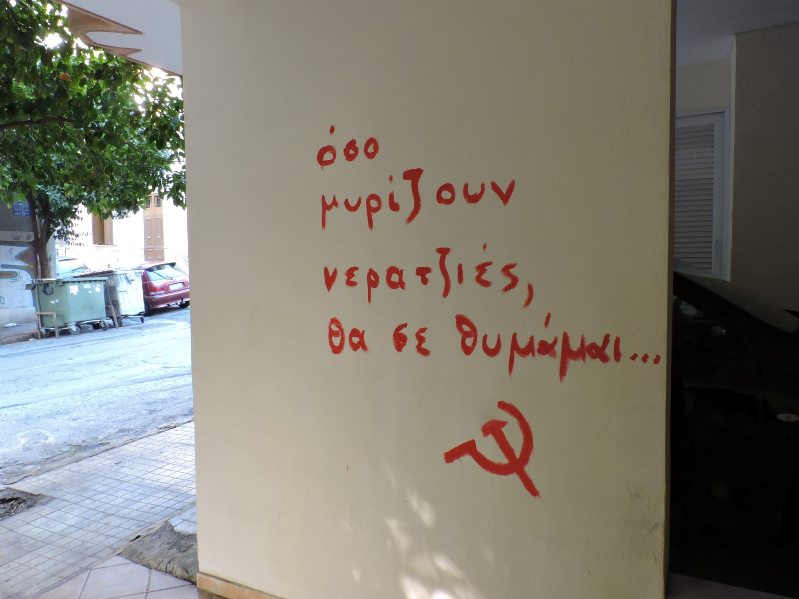 όσο
μυρίζουν
νερατζιές,
θα σε θυμάμαι...